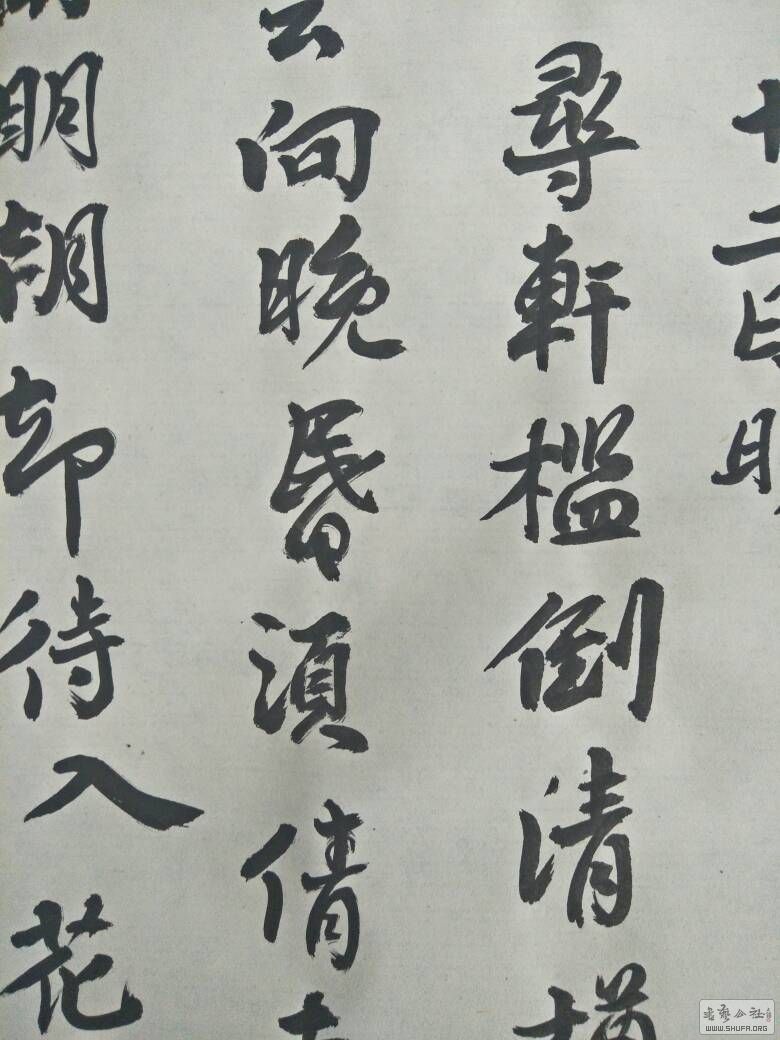 十二
尋軒檻倒清
向晚昏須倩
明朝却待入花
書藝公社
WWW.SHUFA.ORG